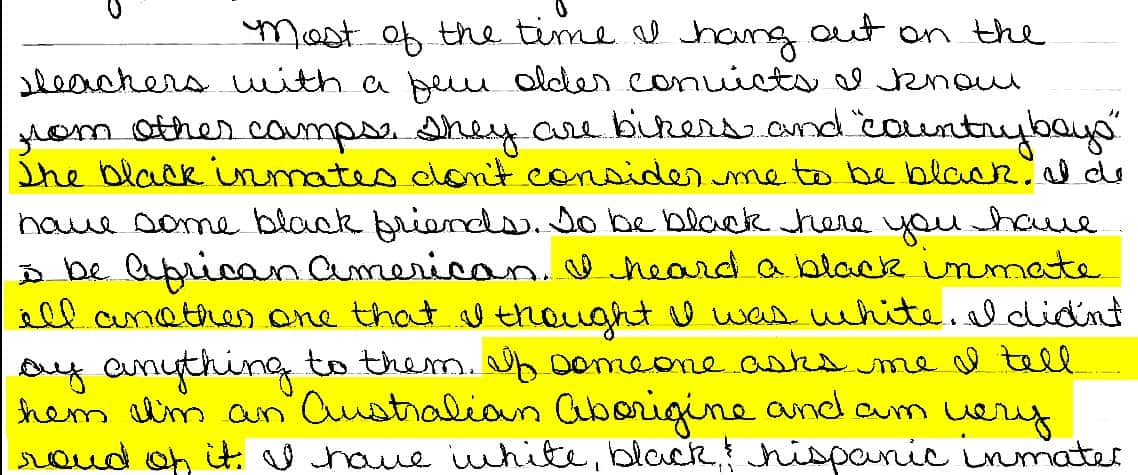 Most of the time I hang out on the
bleachers with a few older convicts I know
from other camps. They are bikers and "countryboys"
The black inmates don't consider me to be black. I do
have some black friends. To be black here you have
to be African American. I heard a black inmate
ell another one that I thought I was white. I did'nt
ay anything to them. If someone asks me I tell
hem I'm an Australian Aborigine and am very
roud of it. I have white, black, & hispanic inmates